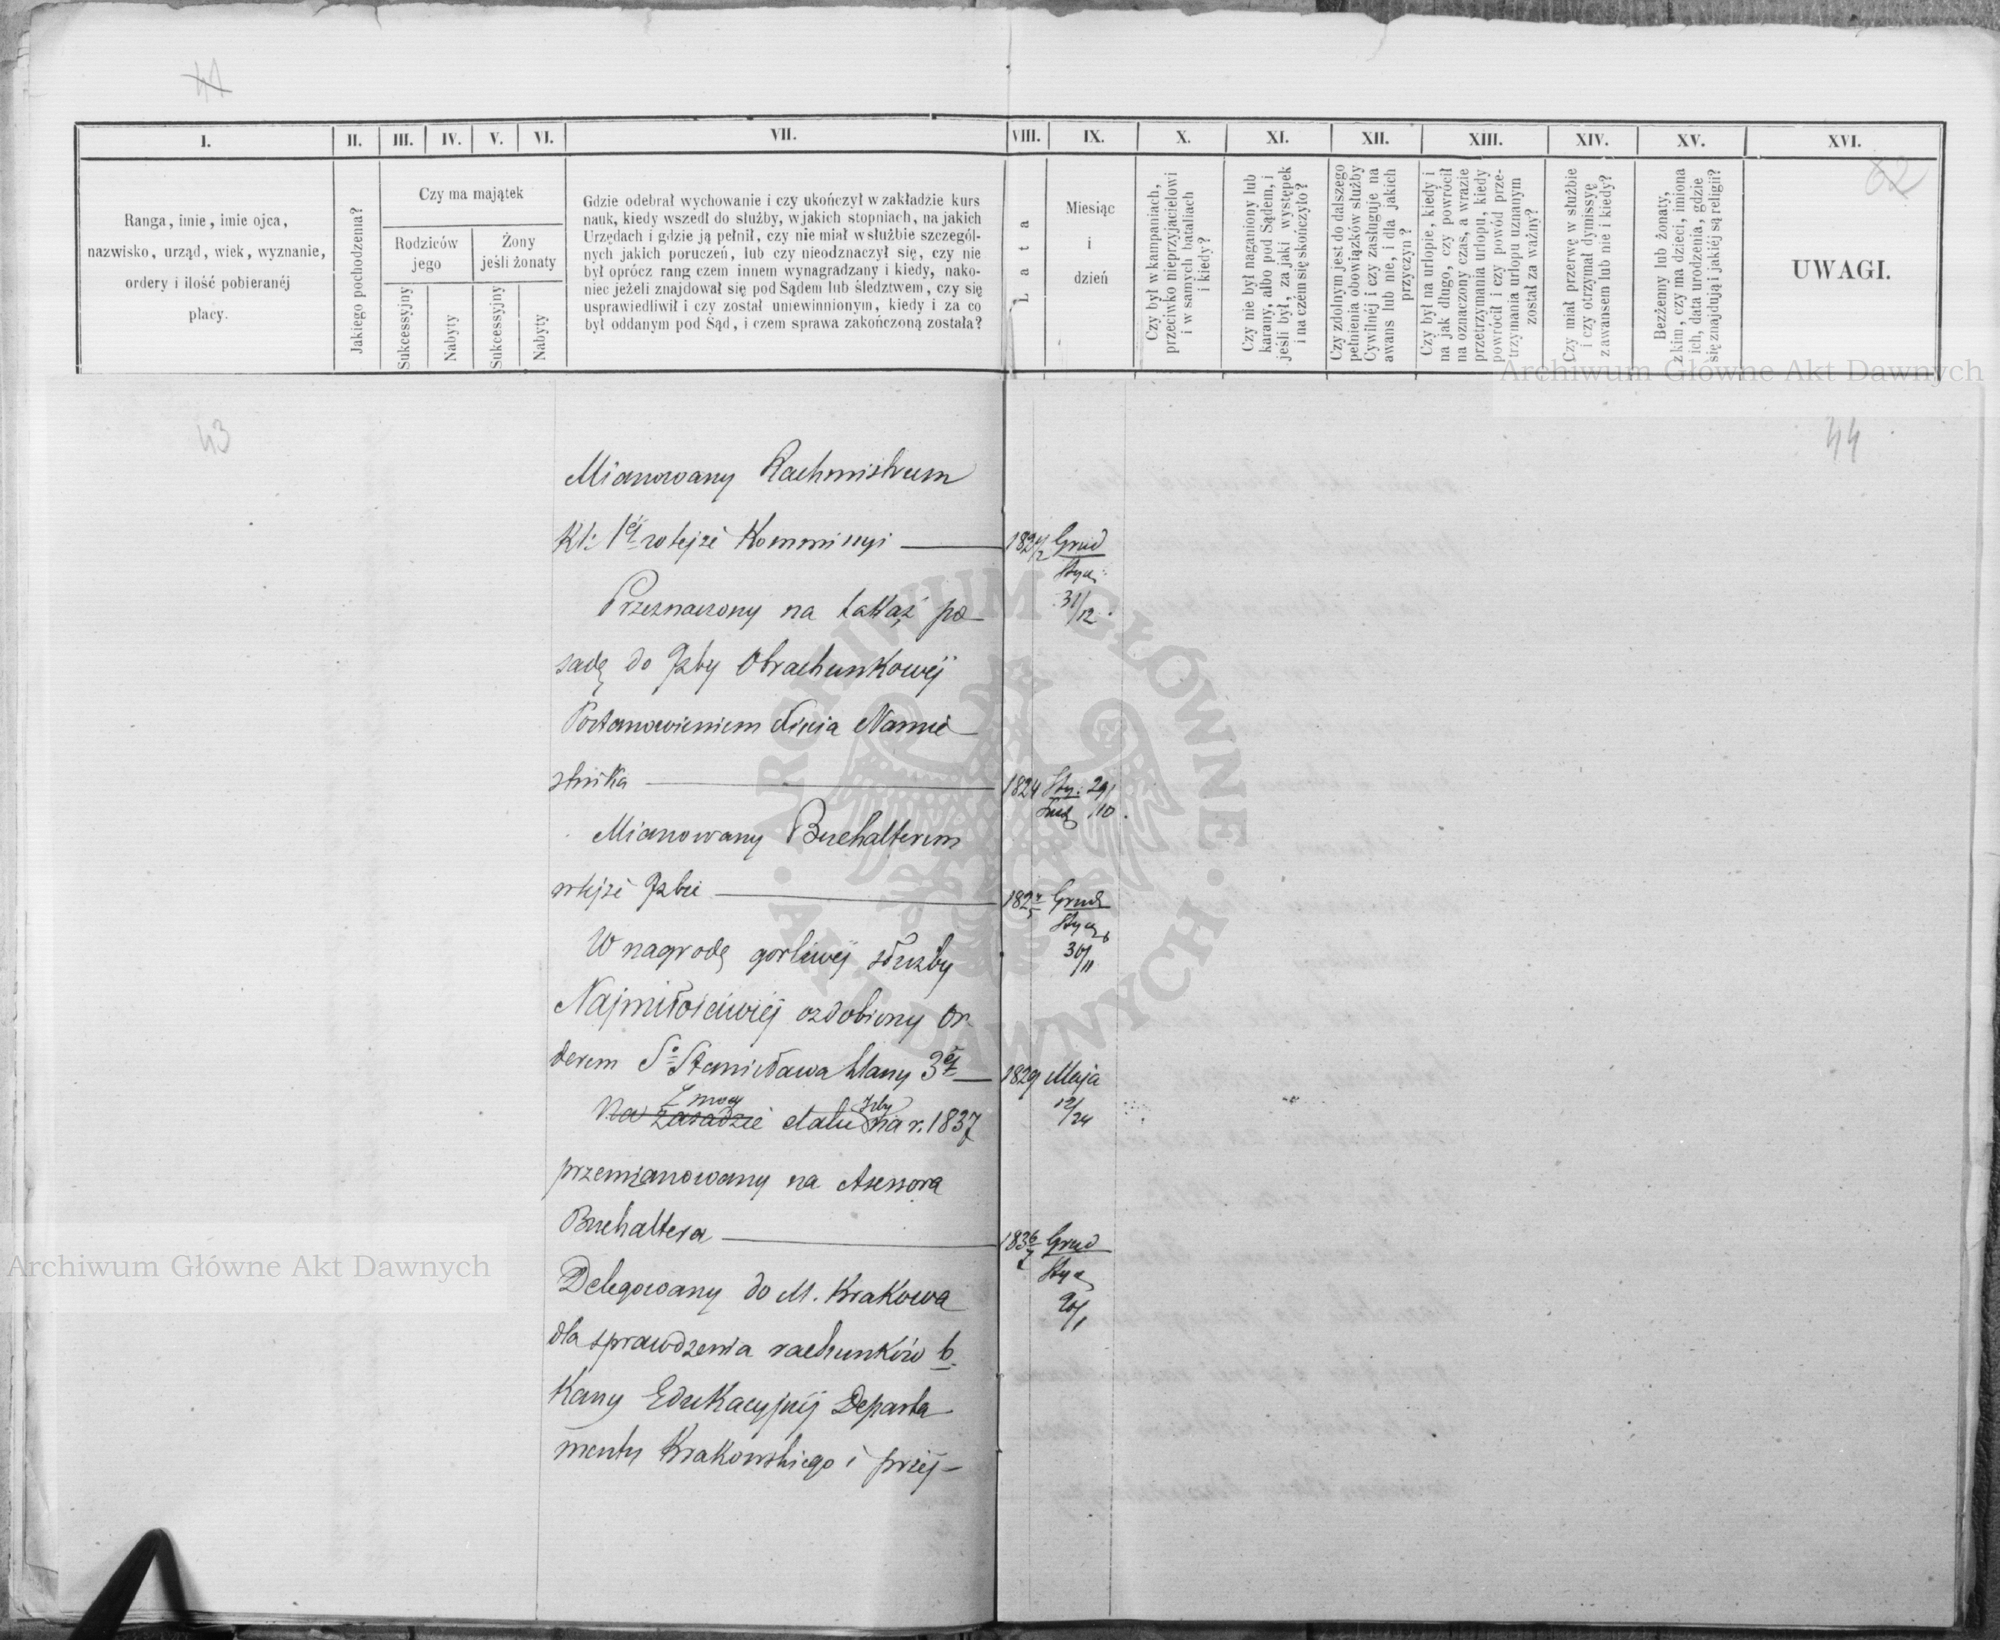 41
I. II. III. IV. V. VI. VII. VIII. IX. X. XI. XII. XIII. XIV. XV. XVI.
62
Ranga, imie, imie ojca,
nazwisko, urząd, wiek, wyznanie,
ordery i ilość pobieranéj
płacy.
Jakiego pochodzenia?
Czy ma majątek
Rodziców
jego
Żony
jeśli żonaty
Sukcessyjny
Nabyty
Sukcessyjny
Nabyty
Gdzie odebrał wychowanie i czy ukończył w zakładzie kurs
nauk, kiedy wszedł do służby, w jakich stopniach, na jakich
Urzędach i gdzie ją pełnił, czy nie miał w służbie szczegól-
nych jakich poruczeń, lub czy nieodznaczył się, czy nie
był oprócz rang czem innem wynagradzany i kiedy, nako-
niec jeżeli znajdował się pod Sądem lub śledztwem, czy się
usprawiedliwił i czy został uniewinnionym, kiedy i za co
był oddanym pod Sąd, i czem sprawa zakończoną została?
Lata
Miesiąc
i
dzień
Czy był w kampaniach,
przeciwko nieprzyjacielowi
i w samych bataliach
i kiedy?
Czy nie był naganiony lub
karany, albo pod Sądem, i
jeśli był, za jaki występek
i na czém się skończyło?
Czy zdolnym jest do dalszego
pełnienia obowiązków służby
Cywilnéj i czy zasługuje na
awans lub nie, i dla jakich
przyczyn?
Czy był na urlopie, kiedy i
na jak długo, czy powrócił
na oznaczony czas, a w razie
przetrzymania urlopu, kiedy
powrócił i czy powód prze-
trzymania urlopu uznanym
został za ważny?
Czy miał przerwę w służbie
i czy otrzymał dymissyę
z awansem lub nie i kiedy?
Bezżenny lub żonaty,
z kim, czy ma dzieci, imiona
ich, data urodzenia, gdzie
się znajdują i jakiéj są religii?
UWAGI.
Archiwum Główne Akt Dawnych
43
44
Mianowany Rachmistrzem
Kl: 1éj w tejże Kommissyi 1821/2 Grud
Stycz
31/12
Przeznaczony na takąż po-
sadę do Izby Obrachunkowéj
Postanowieniem Xięcia Namie-
stnika 1824 Sty: 29/
Lut 10.
Mianowany Buchalterem
w tejże Izbie 1824/5 Grud
Stycz
30/11
W nagrodę gorliwéj służby
Najmiłościwiéj ozdobiony Or-
derem Sgo Stanisława klassy 3éj 1829 Maja
12/24
Z mocy Izby
Na zasadzie etatu na r. 1837
przemianowany na Assessora
Buchaltera 1836/7 Grud
Stycz
20/1
Delegowany do M. Krakowa
dla sprawdzenia rachunków b.
Kassy Edukacyjnéj Departa-
mentu Krakowskiego i przéj-
ARCHIWUM GŁÓWNE AKT DAWNYCH
Archiwum Główne Akt Dawnych